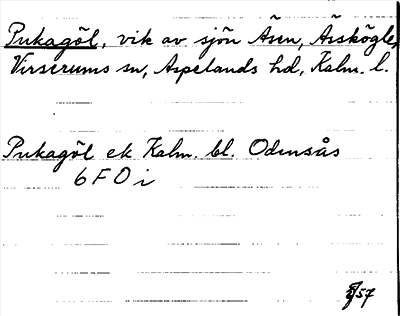 Pukagöl, vik av sjön Åsen, Åsskögle,
Virserums sn, Aspelands hd, Kalm. l.
Pukagöl ek Kalm. bl. Odensås
6 F O i
57